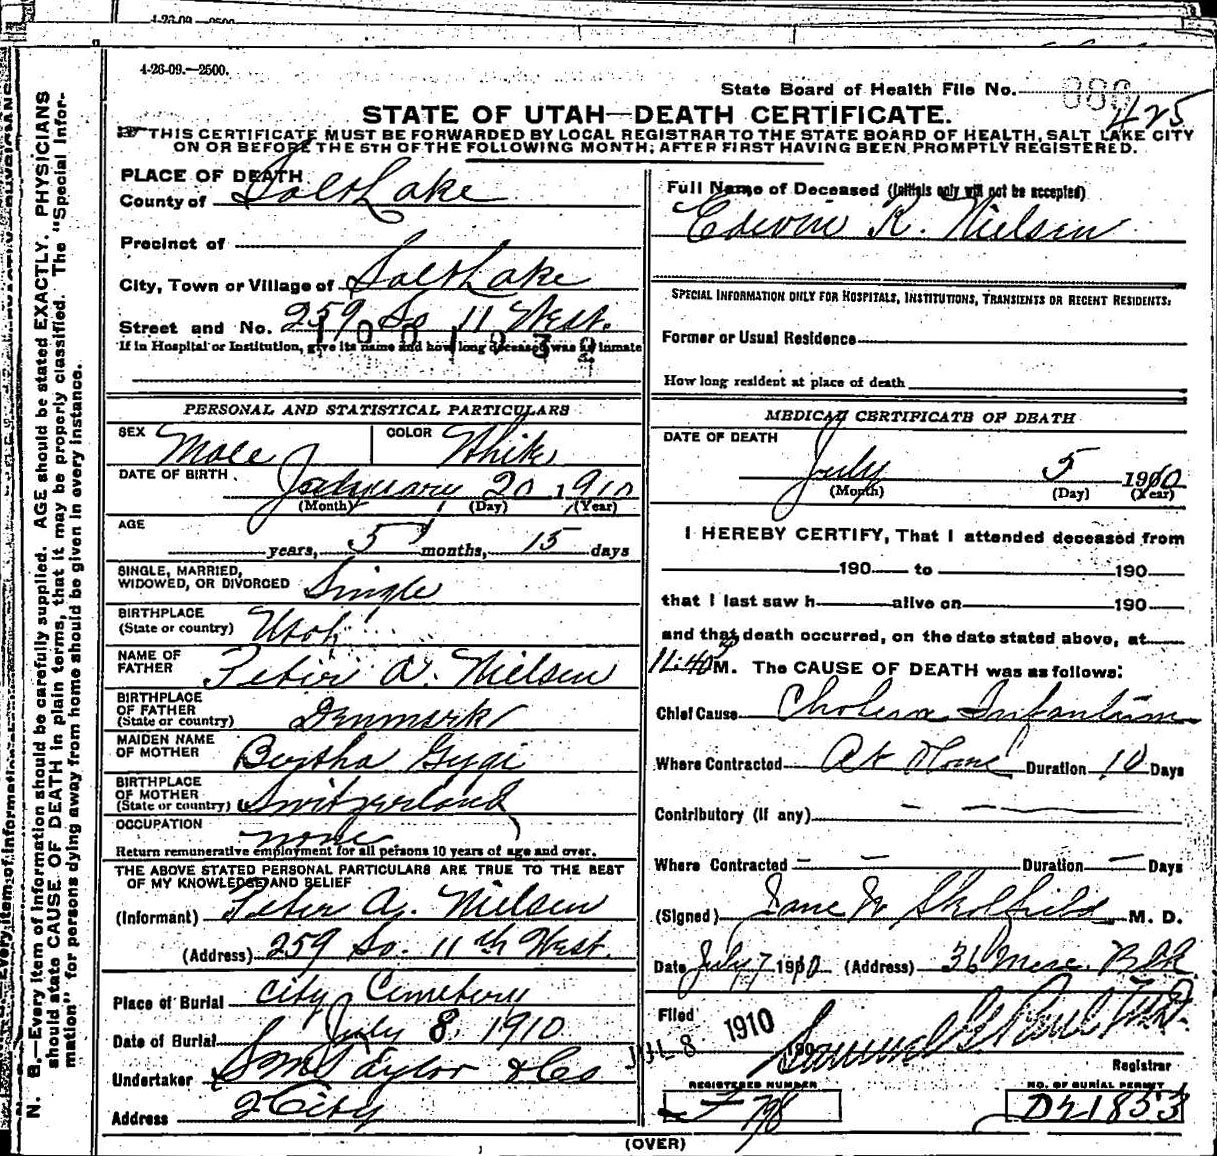 4-26-09.—2500.
4-26-09.—2500.
State Board of Health File No. 425
STATE OF UTAH—DEATH CERTIFICATE.
THIS CERTIFICATE MUST BE FORWARDED BY LOCAL REGISTRAR TO THE STATE BOARD OF HEALTH, SALT LAKE CITY
ON OR BEFORE THE 5TH OF THE FOLLOWING MONTH; AFTER FIRST HAVING BEEN PROMPTLY REGISTERED.
PLACE OF DEATH
County of Salt Lake
Precinct of
City, Town or Village of Salt Lake
Street and No. 259 So 11 West.
If in Hospital or Institution, give its name and how long deceased was an inmate
PERSONAL AND STATISTICAL PARTICULARS
SEX Male COLOR White
DATE OF BIRTH January 20, 1910
(Month) (Day) (Year)
AGE
years, 5 months, 15 days
SINGLE, MARRIED,
WIDOWED, OR DIVORCED Single
BIRTHPLACE
(State or country) Utah
NAME OF
FATHER Peter A. Nielsen
BIRTHPLACE
OF FATHER
(State or country) Denmark
MAIDEN NAME
OF MOTHER Bertha Gygi
BIRTHPLACE
OF MOTHER
(State or country) Switzerland
OCCUPATION none
Return remunerative employment for all persons 10 years of age and over.
THE ABOVE STATED PERSONAL PARTICULARS ARE TRUE TO THE BEST
OF MY KNOWLEDGE AND BELIEF
(Informant) Peter A. Nielsen
(Address) 259 So. 11th West.
Place of Burial City Cemetery
Date of Burial July 8, 1910
Undertaker S M Taylor & Co
Address City
Full Name of Deceased (Initials only will not be accepted)
Edwin R. Nielsen
SPECIAL INFORMATION ONLY FOR HOSPITALS, INSTITUTIONS, TRANSIENTS OR RECENT RESIDENTS:
Former or Usual Residence
How long resident at place of death
MEDICAL CERTIFICATE OF DEATH
DATE OF DEATH
July 5 1910
(Month) (Day) (Year)
I HEREBY CERTIFY, That I attended deceased from
190 to 190
that I last saw h alive on 190
and that death occurred, on the date stated above, at
11:40 P M. The CAUSE OF DEATH was as follows:
Chief Cause Cholera Infantum
Where Contracted At Home Duration 10 Days
Contributory (If any) — —
Where Contracted — — Duration — Days
(Signed) Jane W Skolfield M. D.
Date July 7 1910 (Address) 36 Merc. Blk
Filed JUL 8 1910 190
Registrar
REGISTERED NUMBER NO. OF BURIAL PERMIT
F 798 D21853
(OVER)
N. B.—Every item of information should be carefully supplied. AGE should be stated EXACTLY. PHYSICIANS
should state CAUSE OF DEATH in plain terms, that it may be properly classified. The "Special Infor-
mation" for persons dying away from home should be given in every instance.